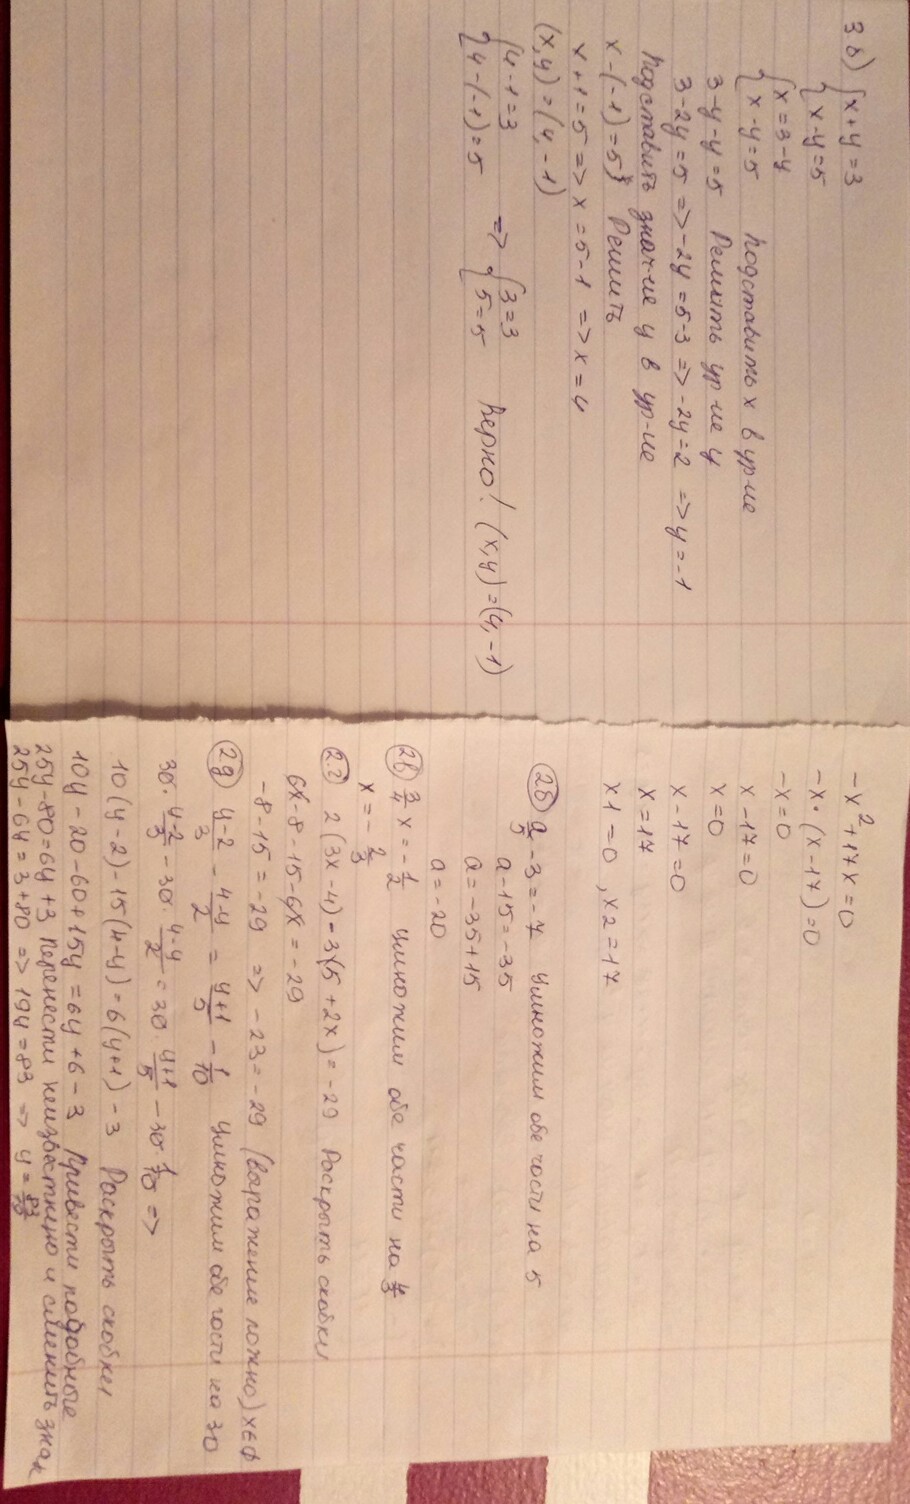 3.б) {x+y=3
{x-y=5
{x=3-y
{x-y=5 подставить x в ур-ие
3-y-y=5 Решить ур-ие y
3-2y=5 => -2y=5-3 => -2y=2 => y=-1
Подставить знач-ие y в ур-ие
x-(-1)=5} Решить
x+1=5 => x=5-1 => x=4
(x,y)=(4,-1)
{4-1=3 => {3=3
{4-(-1)=5 {5=5 Верно! (x,y)=(4,-1)
-x²+17x=0
-x·(x-17)=0
-x=0
x-17=0
x=0
x-17=0
x=17
x1=0, x2=17
2б) a/5-3=-7 Умножим обе части на 5
a-15=-35
a=-35+15
a=-20
2в) 3/4x=-1/2 Умножим обе части на 4/3
x=-2/3
2.г) 2(3x-4)-3(5+2x)=-29 Раскрыть скобки
6x-8-15-6x=-29
-8-15=-29 => -23=-29 (выражение ложно) x∈ф
2д) y-2/3 - 4-y/2 = y+1/5 - 1/10 Умножим обе части на 30
30·y-2/3-30·4-y/2=30·y+1/5-30·1/10 =>
10(y-2)-15(4-y)=6(y+1)-3 Раскрыть скобки
10y-20-60+15y=6y+6-3 Привести подобные
25y-80=6y+3 Перенести неизвестную и сменить знак
25y-6y=3+80 => 19y=83 => y=83/19